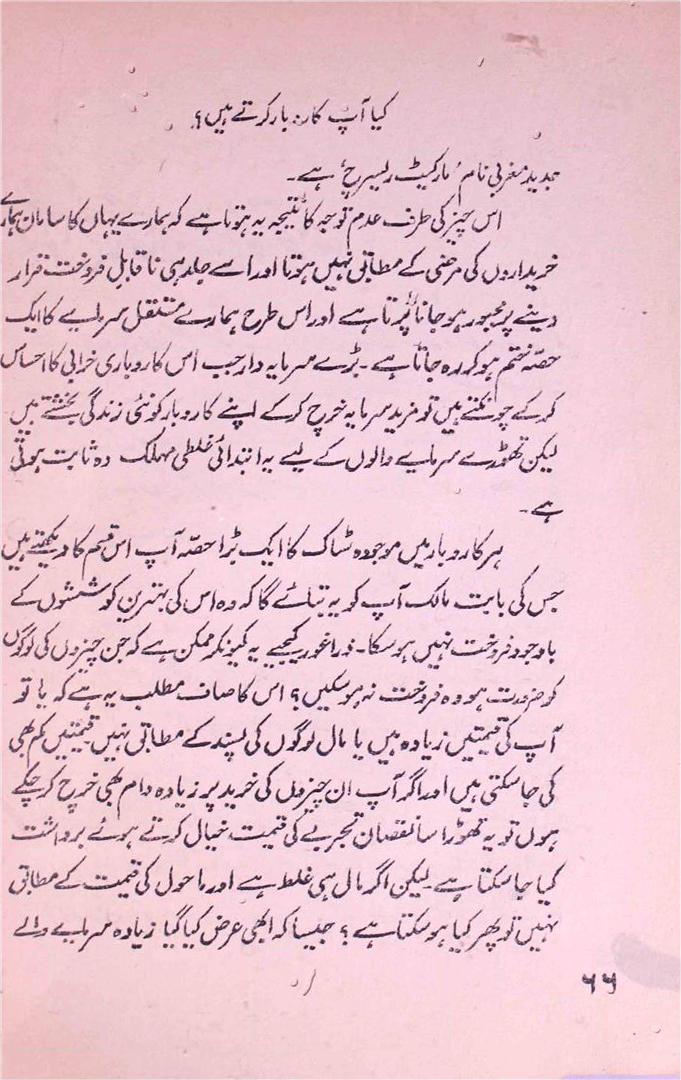 کیا آپ کاروبار کرتے ہیں؟
جدید مغربی نام ’مارکیٹ ریسرچ‘ ہے۔
اس چیز کی طرف عدم توجہ کا نتیجہ یہ ہوتا ہے کہ ہمارے یہاں کا سامان ہمارے
خریداروں کی مرضی کے مطابق نہیں ہوتا اور اسے جلد ہی ناقابل فروخت قرار
دینے پر مجبور ہو جانا پڑتا ہے اور اس طرح ہمارے مستقل سرمایے کا ایک
حصّہ ختم ہو کر رہ جاتا ہے۔ بڑے سرمایہ دار جب اس کاروباری خرابی کا احساس
کر کے چونکتے ہیں تو مزید سرمایہ خرچ کر کے اپنے کاروبار کو نئی زندگی بخشتے ہیں
لیکن تھوڑے سرمایے والوں کے لیے یہ ابتدائی غلطی مہلک دہ ثابت ہوتی
ہے۔
ہر کاروبار میں موجودہ سٹاک کا ایک بڑا حصّہ آپ اس قسم کا دیکھتے ہیں
جس کی بابت مالک آپ کو یہ بتائے گا کہ وہ اس کی بہترین کوششوں کے
باوجود فروخت نہیں ہو سکا۔ ذرا غور کیجیے یہ کیونکر ممکن ہے کہ جن چیزوں کی لوگوں
کو ضرورت ہو وہ فروخت نہ ہو سکیں؟ اس کا صاف مطلب یہ ہے کہ یا تو
آپ کی قیمتیں زیادہ ہیں یا مال لوگوں کی پسند کے مطابق نہیں قیمتیں کم بھی
کی جا سکتی ہیں اور اگر آپ ان چیزوں کی خرید پر زیادہ دام بھی خرچ کر چکے
ہوں تو یہ تھوڑا سا نقصان تجربے کی قیمت خیال کرتے ہوئے برداشت
کیا جا سکتا ہے۔ لیکن اگر مال ہی غلط ہے اور ماحول کی قیمت کے مطابق
نہیں تو پھر کیا ہو سکتا ہے؟ جیسا کہ ابھی عرض کیا گیا زیادہ سرمایے والے
۶۶